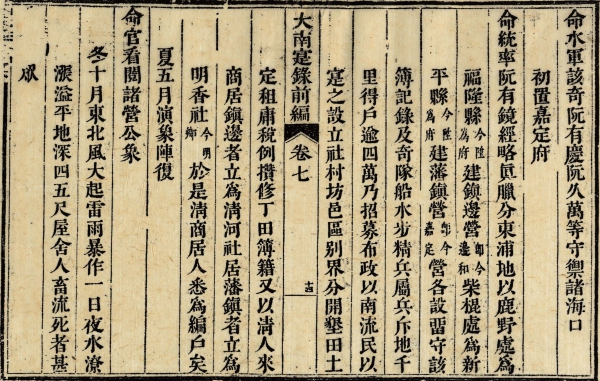 命水軍該奇阮有慶阮久萬等守禦諸海口
初置嘉定府
命統率阮有鏡經略眞臘分東浦地以鹿野處爲
福隆縣今陞爲府建鎮邊營即今邊和柴棍處爲新
平縣今陞爲府建藩鎮營即今嘉定營各設畱守該
簿記錄及奇隊船水步精兵屬兵斥地千
里得戶逾四萬乃招募布政以南流民以
寔之設立社村坊邑區別界分開墾田土
大南寔錄前編 卷七 十四
定租庸稅例攢修丁田簿籍又以淸人來
商居鎮邊者立爲淸河社居藩鎮者立爲
明香社今明鄉於是淸商居人悉爲編戶矣
夏五月演象陣復
命官看閱諸營公象
冬十月東北風大起雷雨暴作一日夜水潦
漲溢平地深四五尺屋舍人畜流死者甚
眾